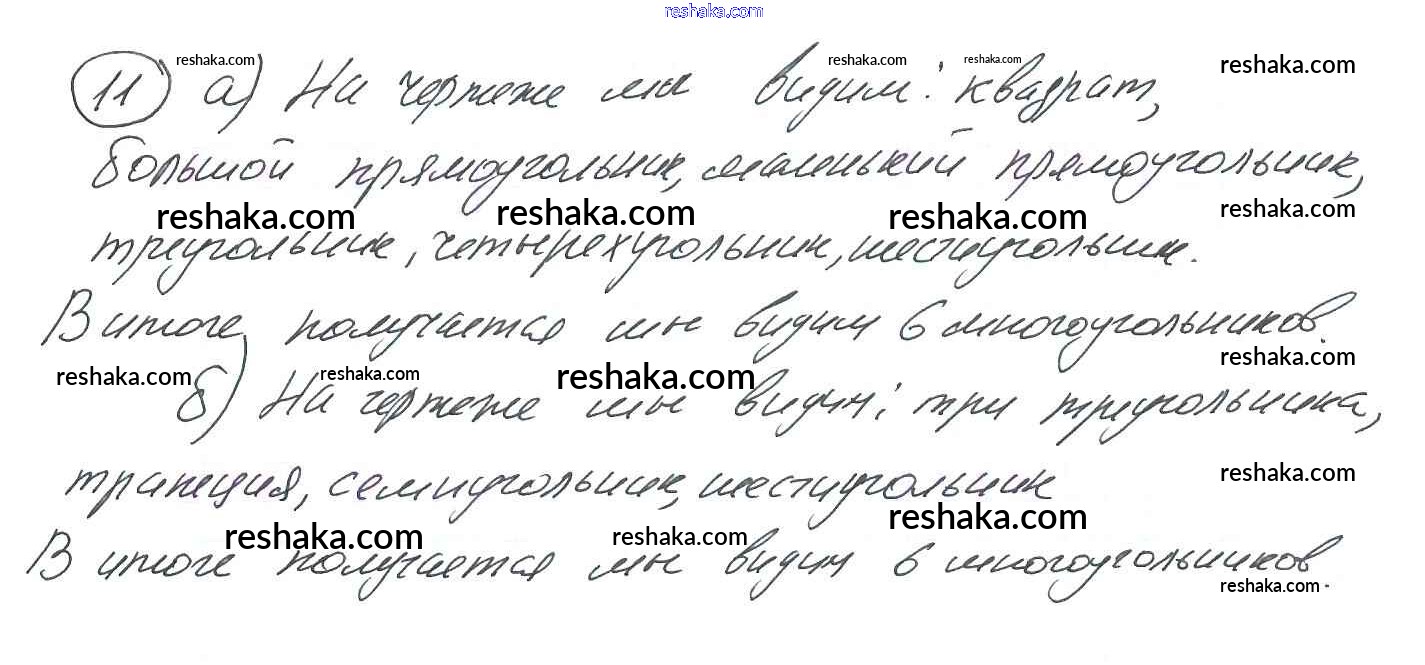 reshaka.com
11 а) На чертеже мы видим: квадрат,
reshaka.com reshaka.com reshaka.com reshaka.com
большой прямоугольник, маленький прямоугольник,
reshaka.com reshaka.com reshaka.com reshaka.com
треугольник, четырехугольник, шестиугольник.
В итоге получается мы видим 6 многоугольников.
reshaka.com reshaka.com reshaka.com reshaka.com
б) На чертеже мы видим: три треугольника,
трапеция, семиугольник, шестиугольник
reshaka.com
reshaka.com reshaka.com reshaka.com
В итоге получается мы видим 6 многоугольников.
reshaka.com